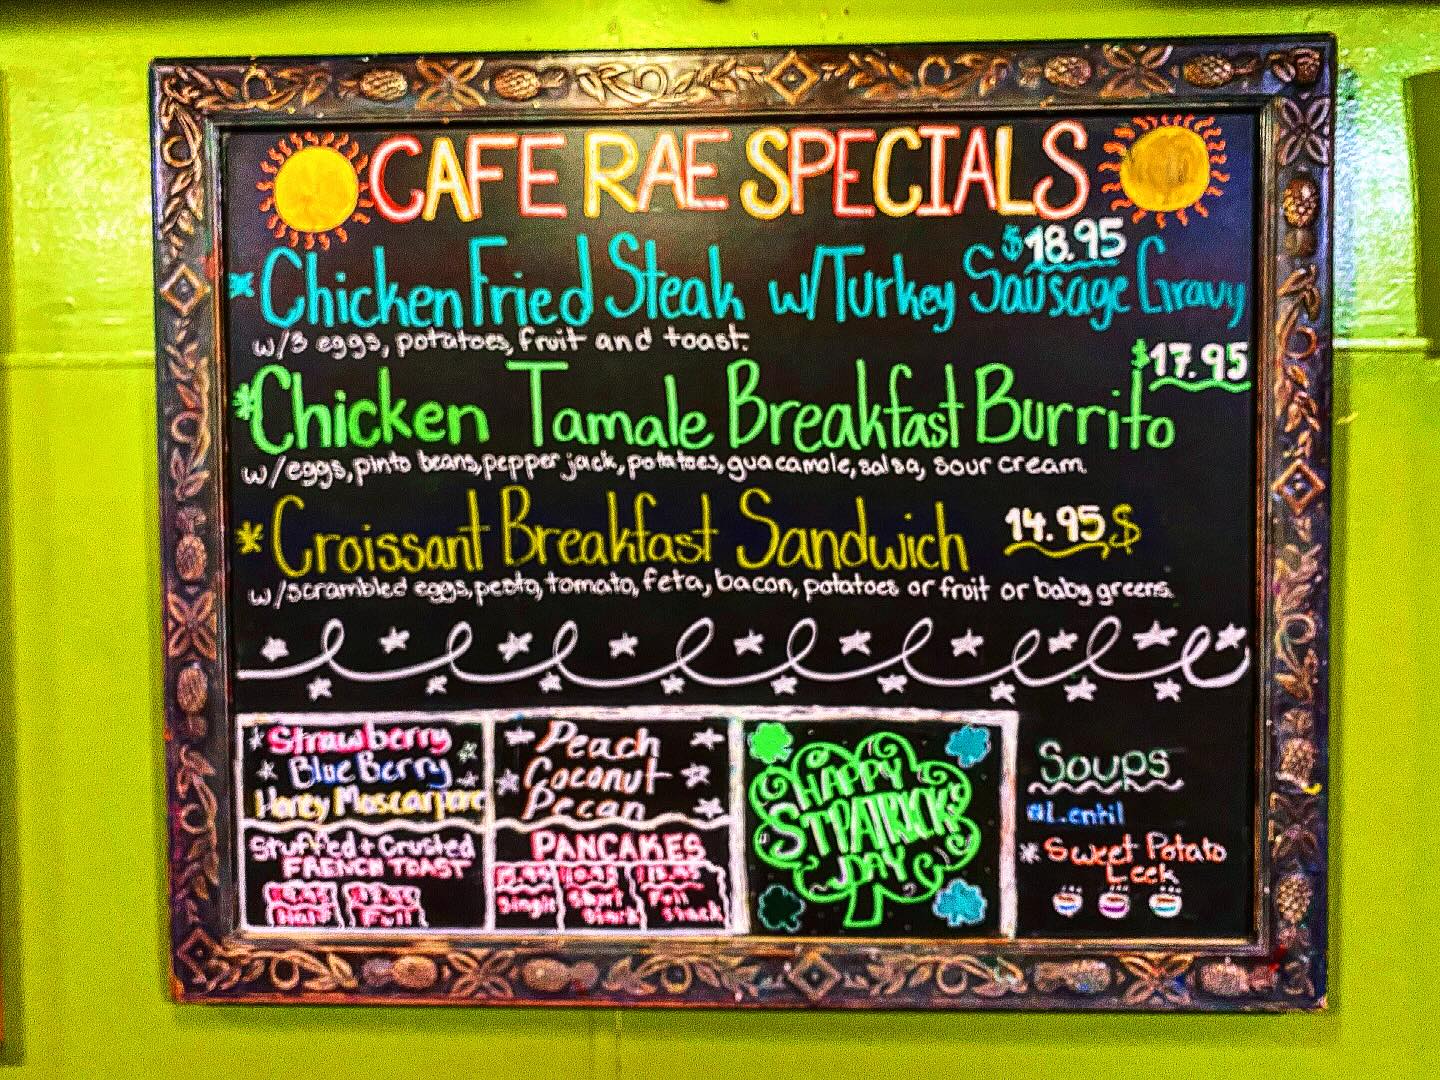 CAFE RAE SPECIALS
$18.95
* Chicken Fried Steak w/Turkey Sausage Gravy
w/3 eggs, potatoes, fruit and toast.
$17.95
*Chicken Tamale Breakfast Burrito
w/eggs, pinto beans, pepper jack, potatoes, guacamole, salsa, sour cream.
* Croissant Breakfast Sandwich 14.95$
w/scrambled eggs, pesto, tomato, feta, bacon, potatoes or fruit or baby greens.
Strawberry
Blue Berry
Honey Mascarpone
Stuffed + Crusted
FRENCH TOAST
Half Full
Peach
Coconut
Pecan
PANCAKES
Single Short Stack Full Stack
HAPPY
ST PATRICK'S
DAY
Soups
Lentil
* Sweet Potato
Leek